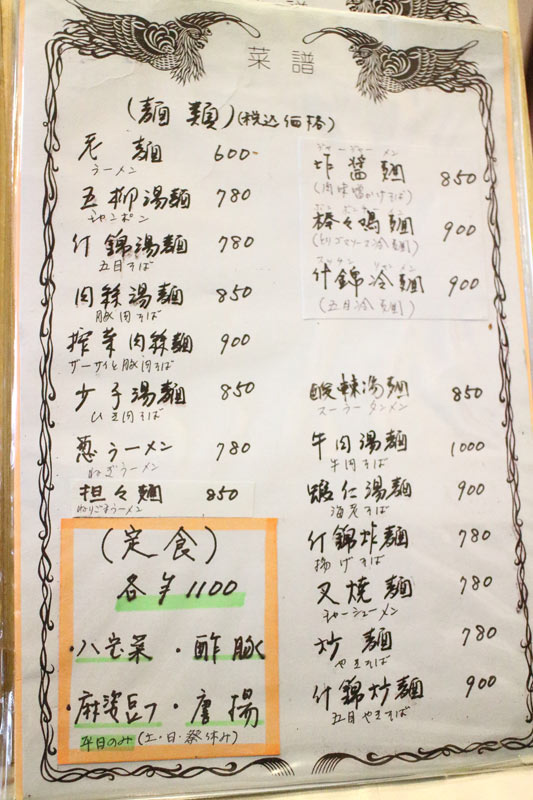 菜譜
(麺類)(税込価格)
毛麺 600-
ラーメン
五柳湯麺 780
チャンポン
什錦湯麺 780
五目そば
肉絲湯麺 850
豚肉そば
搾菜肉絲麺 900
ザーサイと豚肉そば
少子湯麺 850
ひき肉そば
葱ラーメン 780
ねぎラーメン
担々麺 850
ねりごまラーメン
(定食)
各¥1100
・八宝菜 ・酢豚
・麻婆豆フ ・唐揚
平日のみ(土・日・祭休み)
ジャージャーメン
炸醤麺 850
(肉味噌かけそば)
棒々鶏麺 900
(とりゴマソース冷麺)
什錦冷麺 900
(五目冷麺)
酸辣湯麺 850
スーラータンメン
牛肉湯麺 1000
牛肉そば
蝦仁湯麺 900
海老そば
什錦炸麺 780
揚げそば
叉焼麺 780
チャーシューメン
炒麺 780
やきそば
什錦炒麺 900
五目やきそば